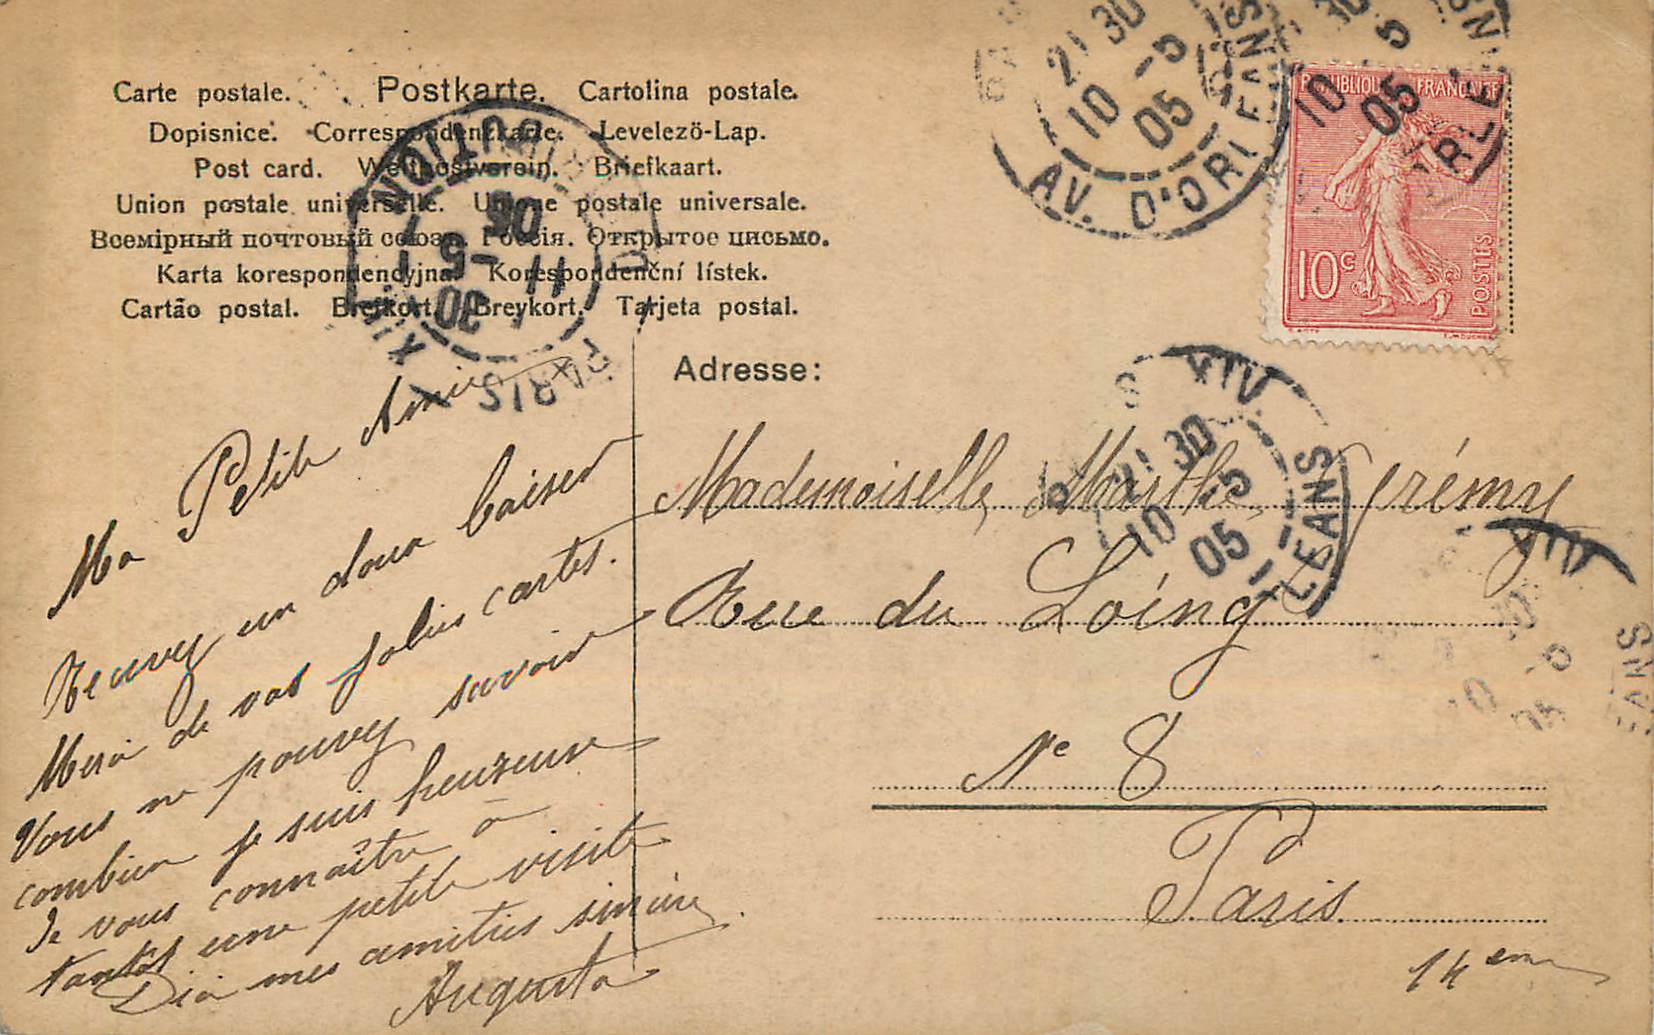 Carte postale. Postkarte. Cartolina postale.
Dopisnice. Correspondenzkarte. Levelezö-Lap.
Post card. Weltpostverein. Briefkaart.
Union postale universelle. Unione postale universale.
Всемірный почтовый союзъ. Россія. Открытое письмо.
Karta korespondencyjna. Korespondenční lístek.
Cartão postal. Brefkort. Breykort. Tarjeta postal.
RÉPUBLIQUE FRANÇAISE
10c
POSTES
21 30
10 -5
05
AV. D'ORLEANS
DISTRIBUTION
11 -5
05
PARIS
XIV
21 30
10 -5
05
LEANS
Adresse:
Ma Petite Amie
Recevez un doux baiser
Merci de vos jolies cartes.
Vous ne pouvez savoir
combien je suis heureuse
Je vous connaître à
tantôt une petite visite
mes amitiés sincère
Augusta
Mademoiselle Marthe Grémy
Rue du Loing
No 8
Paris
14eme